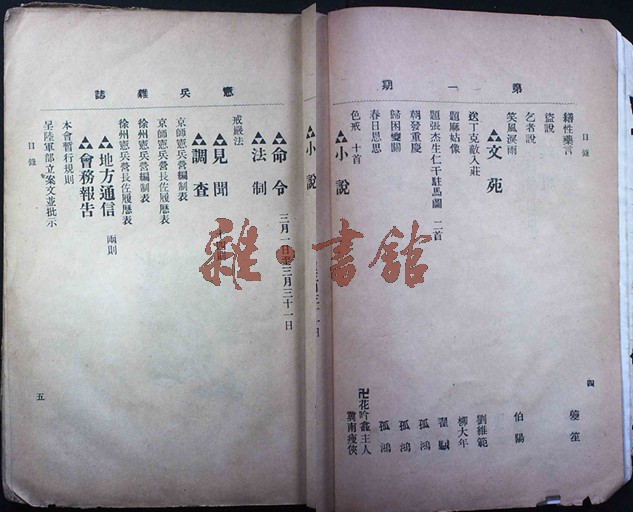 第一期
目錄
繕性藥言
盜說
乞者說
笑風淚雨
伯陽
文苑
送丁克敵入莊
劉維範
題麻姑像
柳大年
題張杰生仁千駐馬圖 二首
朝發重慶
孤鴻
歸困變關
孤鴻
春日思思
孤鴻
色戒 十首
卍花吟盦主人
冀南瘦俠
四
小說
憲兵雜誌
命令 三月一日至三月三十一日
法制
戒嚴法
見聞
調查
京師憲兵營編制表
京師憲兵營長佐履歷表
徐州憲兵營編制表
徐州憲兵營長佐履歷表
地方通信 兩則
會務報告
本會暫行規則
呈陸軍部立案文並批示
目錄
五
雜·書館